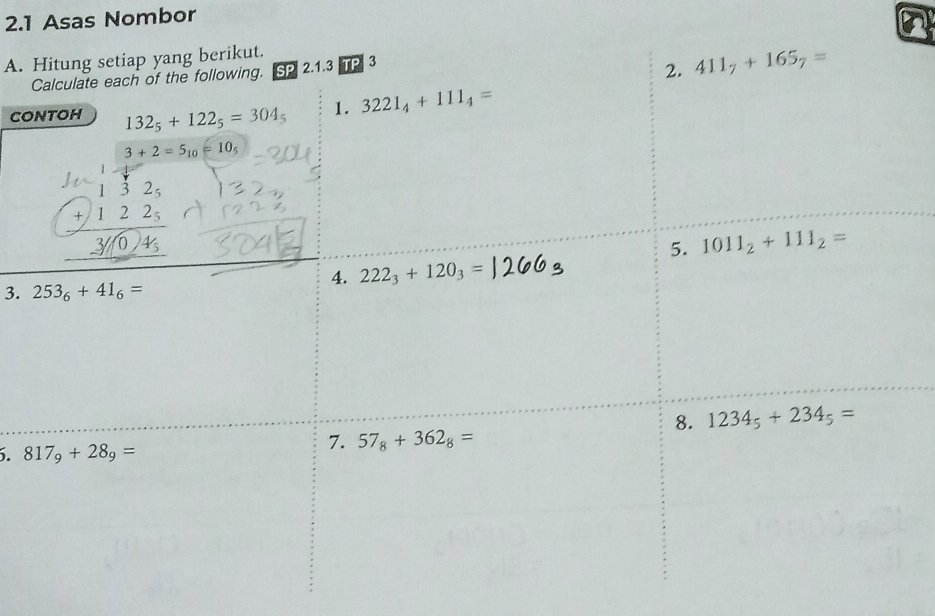 2.1 Asas Nombor
A. Hitung setiap yang berikut.
Calculate each of the following. SP 2.1.3 TP 3
CONTOH
132₅ + 122₅ = 304₅
3 + 2 = 5₁₀ = 10₅
= 304₅
1
1 3 2₅
+ 1 2 2₅
3 0 4₅
132
+ 122
304
1. 3221₄ + 111₄ =
2. 411₇ + 165₇ =
3. 253₆ + 41₆ =
4. 222₃ + 120₃ = 1266₃
5. 1011₂ + 111₂ =
6. 817₉ + 28₉ =
7. 57₈ + 362₈ =
8. 1234₅ + 234₅ =